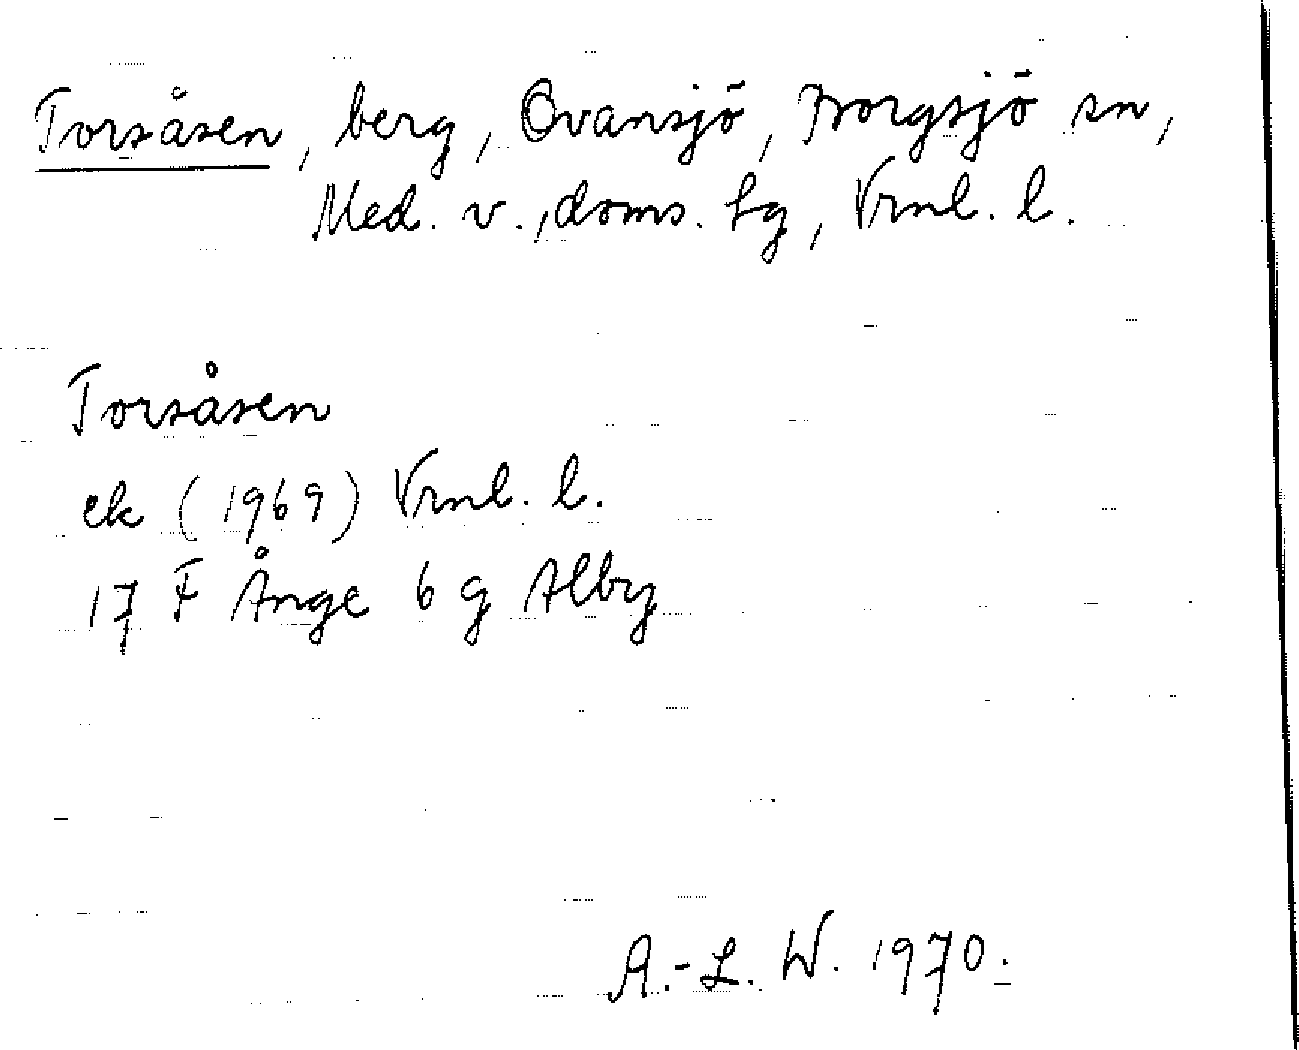 Torsåsen, berg, Ovansjö, Borgsjö sn,
Med. v., doms. hg, Vrnl. l.
Torsåsen
ek (1969) Vrnl. l.
17 F Ånge 6 g Alby
A.-L. W. 1970.